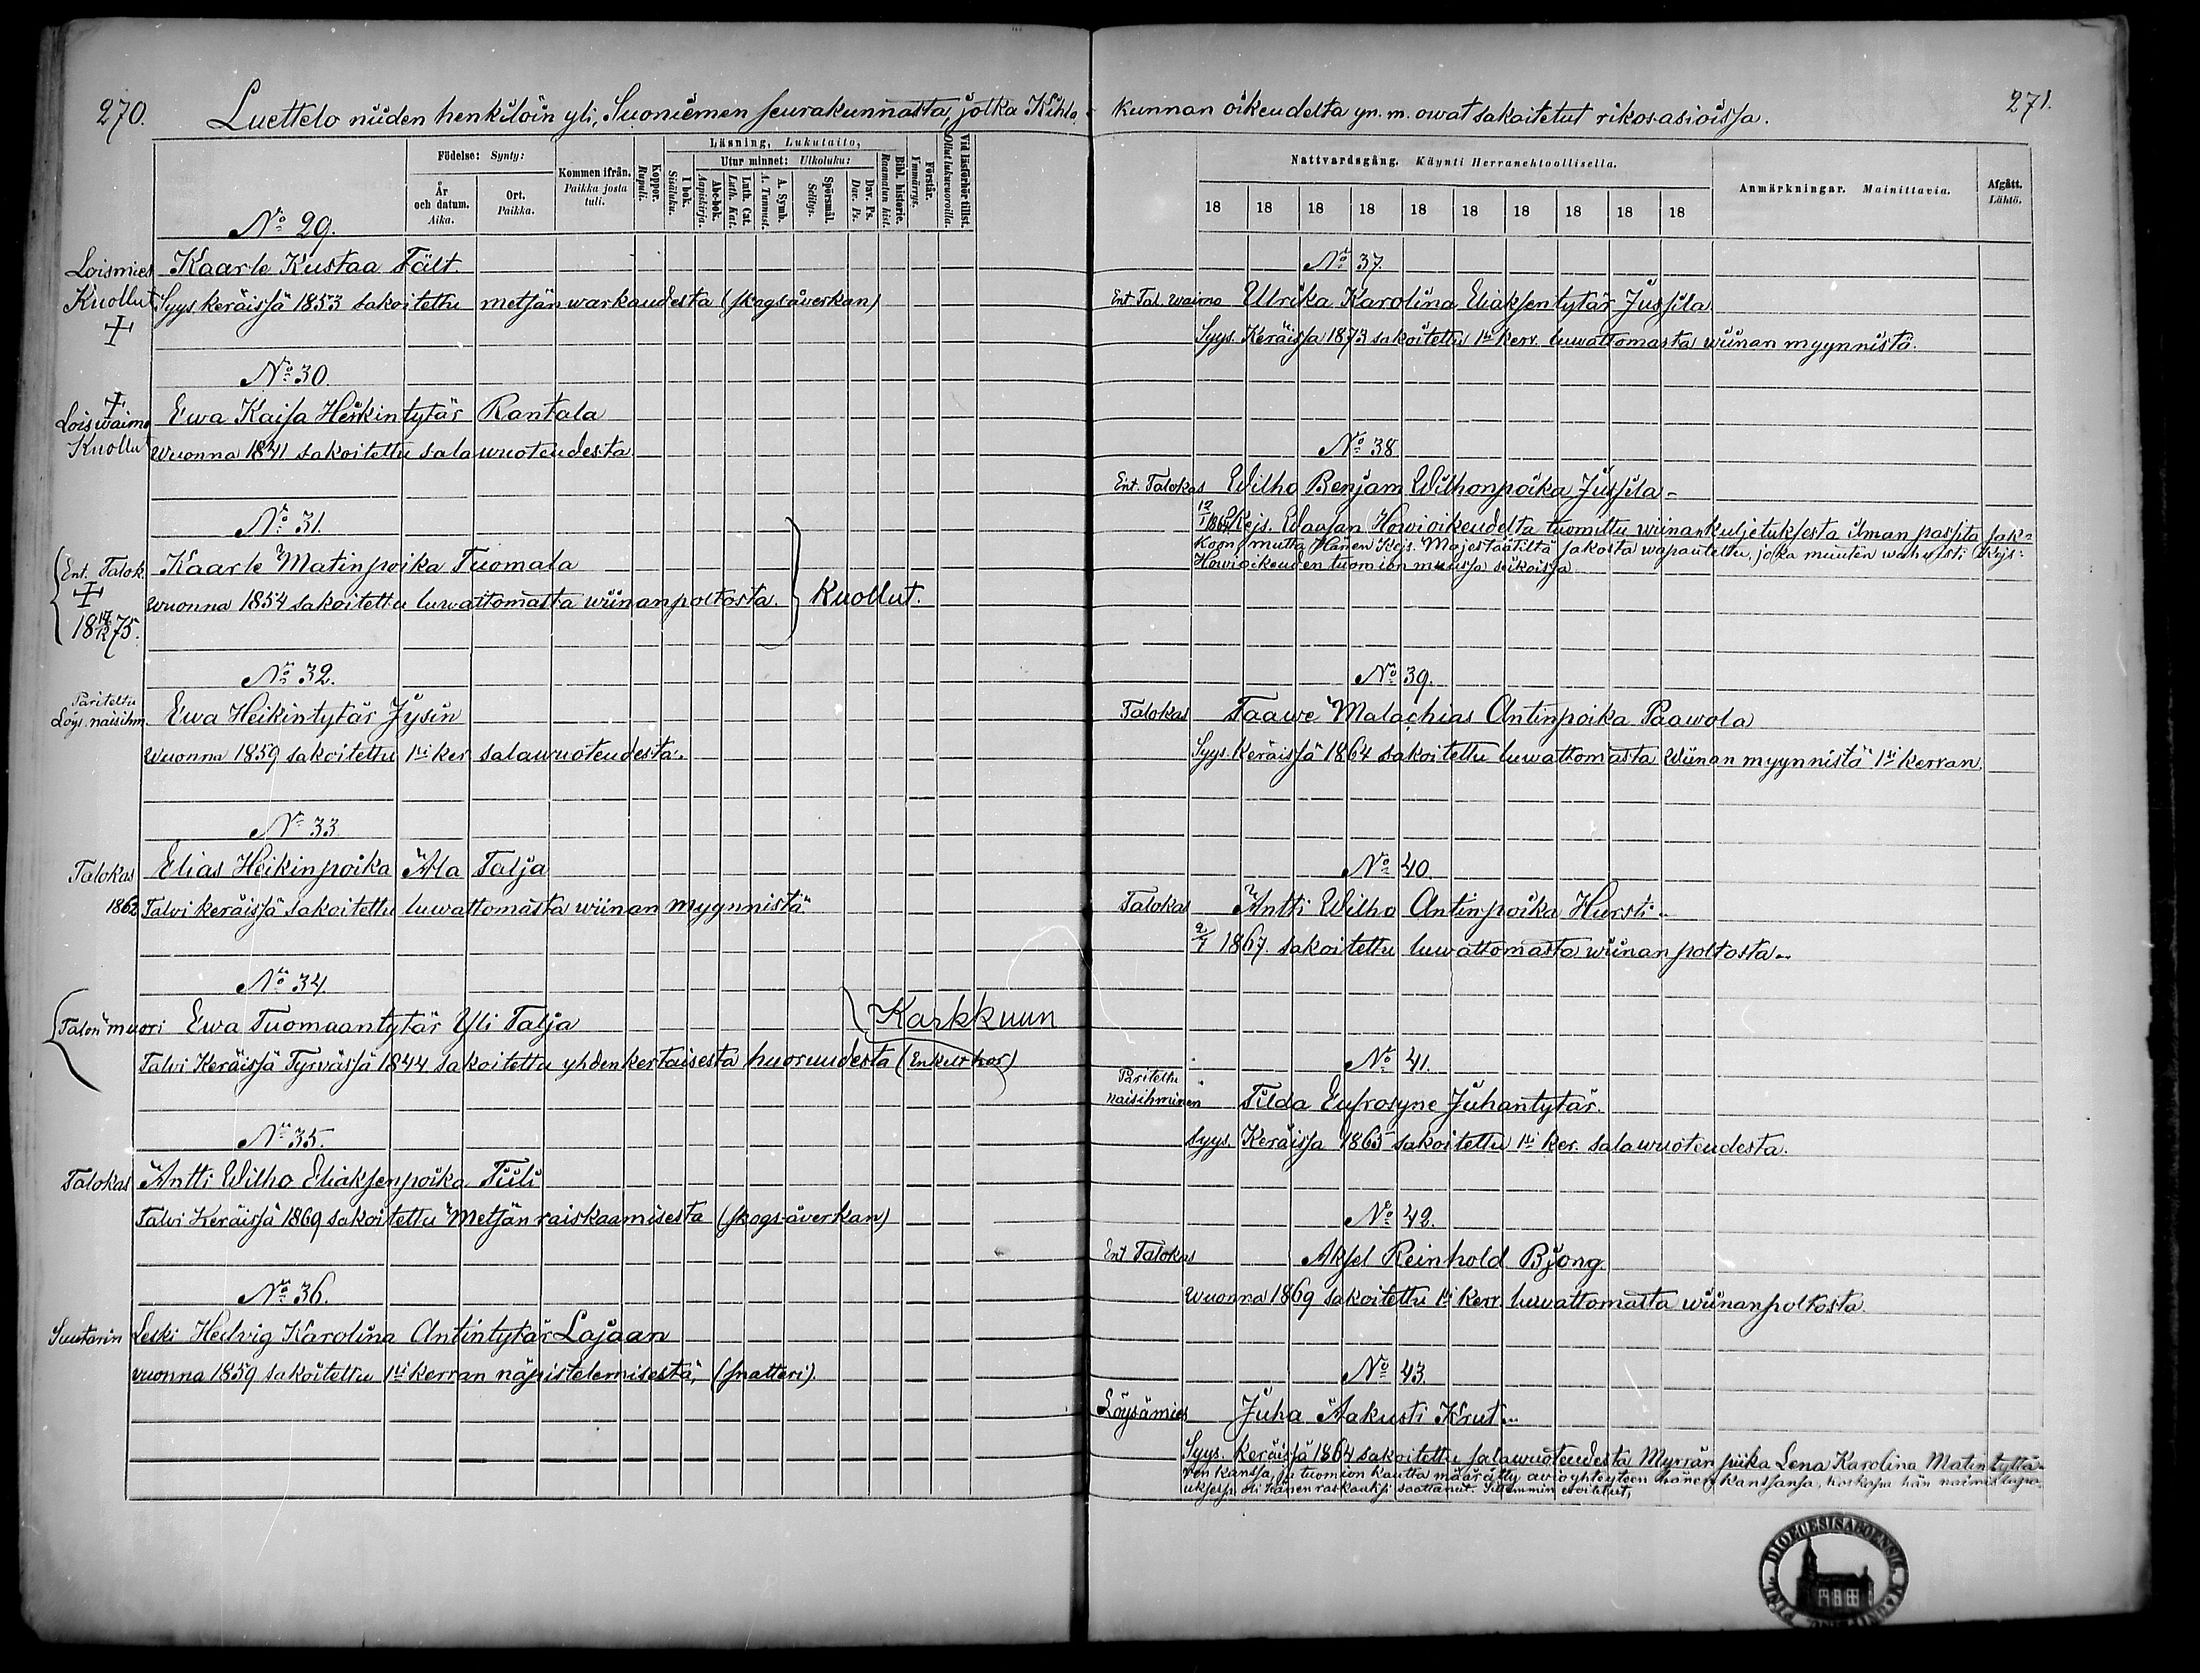 270.
Luettelo niiden henkilöin yli, Suoniemen seurakunnasta, jotka Kihla-
kunnan oikeudelta yn. m. owat sakoitetut rikosasioissa.
271.
Födelse: Synty:
År och datum. Aika.
Ort. Paikka.
Kommen ifrån. Paikka josta tuli.
Koppor. Rupuli.
Läsning, Lukutaito,
I bok. Sisäluku.
Utur minnet: Ulkoluku:
Abc-bok. Aapiskirja.
Luth. Cat. Luth. Kat.
A. Symb. A. Tunnust.
Spörsmål. Selitys.
Dav. Ps. Dav. Ps.
Bibl. historie. Raamatun hist.
Förstår. Ymmärrys.
Vid läsförhör tillst. Ollut lukuwuoroilla.
Nattvardsgång. Käynti Herranehtoollisella.
18 18 18 18 18 18 18 18 18 18
Anmärkningar. Mainittavia.
Afgått. Lähtö.
No 29.
Loismies Kaarle Kustaa Fält.
Kuollut Syys keräissä 1853 sakoitettu metsänwarkaudesta (skogs-åverkan)
No 30.
Loiswaimo Ewa Kaisa Heikintytär Rantala
Kuollut wuonna 1841 sakoitettu salawuoteudesta
No 31.
Ent. Talok. Kaarle Matinpoika Tuomala
wuonna 1854 sakoitettu luwattomasta wiinanpoltosta. Kuollut.
18 75.
No 32.
Päriteltu
Löys. naisihm. Ewa Heikintytär Jysin
wuonna 1859 sakoitettu 1si ker salawuoteudesta.
No 33
Talokas Elias Heikinpoika Ala Talja
1862 Talvi keräissä sakoitettu luwattomasta wiinan myynnistä.
No 34.
Talon muori Ewa Tuomaantytär Yli Talja Karkkuun
Talvi Keräissä Tyrvässä 1844 sakoitettu yhdenkertaisesta huoruudesta (Enkelt hor)
No 35.
Talokas Antti Wilho Eliaksenpoika Tiili
Talvi Keräissä 1869 sakoitettu Metsänraiskaamisesta (skogs-åverkan)
No 36.
Suutarin Leski Hedvig Karolina Antintytär Lajaan
vuonna 1859 sakoitettu 1si kerran näpistelemisestä, (snatteri).
No 37.
Ent Tal. waimo Ulrika Karolina Eliaksentytär Jussila
Syys. Keräissä 1873 sakoitettu 1si kerr. luwattomasta wiinan myynnistä.
No 38
Ent. Talokas Wilho Benjam Wilhonpoika Jussila
Keis. Waasan Howioikeudelta tuomittu wiinankuljetuksesta ilman passita sak-
koon, mutta Hänen Keis. Majestäätiltä sakosta wapautettu, joka muuten wahwisti Keis:
Howioikeuden tuomion muissa seikoissa
No 39.
Talokas Taawe Malachias Antinpoika Paawola
Syys. Keräissä 1864 sakoitettu luwattomasta Wiinan myynnistä 1si kerran
No 40.
Talokas Antti Wilho Antinpoika Hursti
1867. sakoitettu luwattomasta wiinanpoltosta.
No 41.
Päriteltu
naisihminen Tilda Eufrosyne Juhantytär.
Syys. Keräissä 1865 sakoitettu 1si ker. salawuoteudesta.
No 42.
Ent Talokas Aksel Reinhold Bjong.
Wuonna 1869 sakoitettu 1si kerr. luwattomasta wiinanpoltosta
No 43.
Löysämies Juha Aakusti Krut
Syys. keräissä 1864 sakoitettu salawuoteudesta Myrrän piika Lena Karolina Matintyttä-
ren kanssa, ja tuomion kautta määrätty awioyhteyteen hänen kanssansa, koska hän naimislupa-
uksessa oli hänen raskaaksi saattanut.
DIOECESIS ABOENSIS